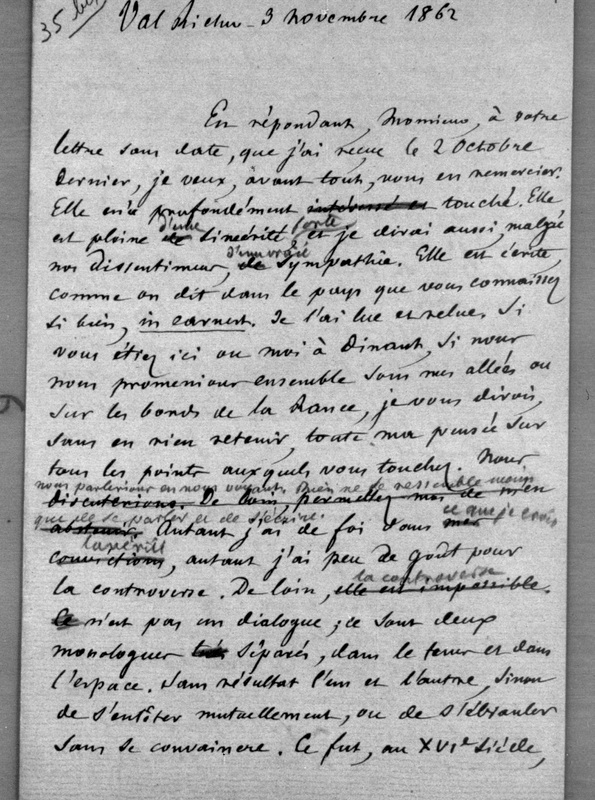 35 bis
Val Richer - 3 novembre 1862
En répondant, Monsieur, à votre
lettre sans date, que j'ai reçue le 2 Octobre
dernier, je veux, avant tout, vous en remercier.
Elle m'a profondément intéressé et touché. Elle
d'une forte
est pleine de sincérité, et je dirai aussi, malgré
d'une vraie
nos dissentimens, de sympathie. Elle est écrite,
comme on dit dans le pays que vous connaissez
si bien, in earnest. Je l'ai lue et relue. Si
vous étiez ici ou moi à Dinant, si nous
nous promenions ensemble sous mes allées ou
sur les bords de la Rance, je vous dirois,
sans en rien retenir, toute ma pensée sur
tous les points auxquels vous touchez. Nous
nous parlerions en nous voyant. Rien ne se ressemble moins
discuterions. De loin, permettez moi de m'en
que de se parler et de s'écrire. ce que je crois
abstenir. Autant j'ai de foi dans mes
la vérité
convictions, autant j'ai peu de goût pour
la controverse
la controverse. De loin, elle est impossible.
Ce n'est pas un dialogue ; ce sont deux
monologues très séparés, dans le tems et dans
l'espace. Sans résultat l'un et l'autre, sinon
de s'entêter mutuellement, ou de s'ébranler
sans se convaincre. Ce fut, au XVIe siècle,